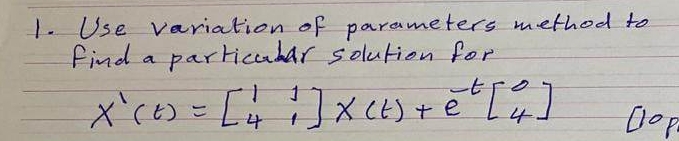 1. Use variation of parameters method to
find a particular solution for
X'(t) = [1 1; 4 1] X(t) + e^-t [0; 4]